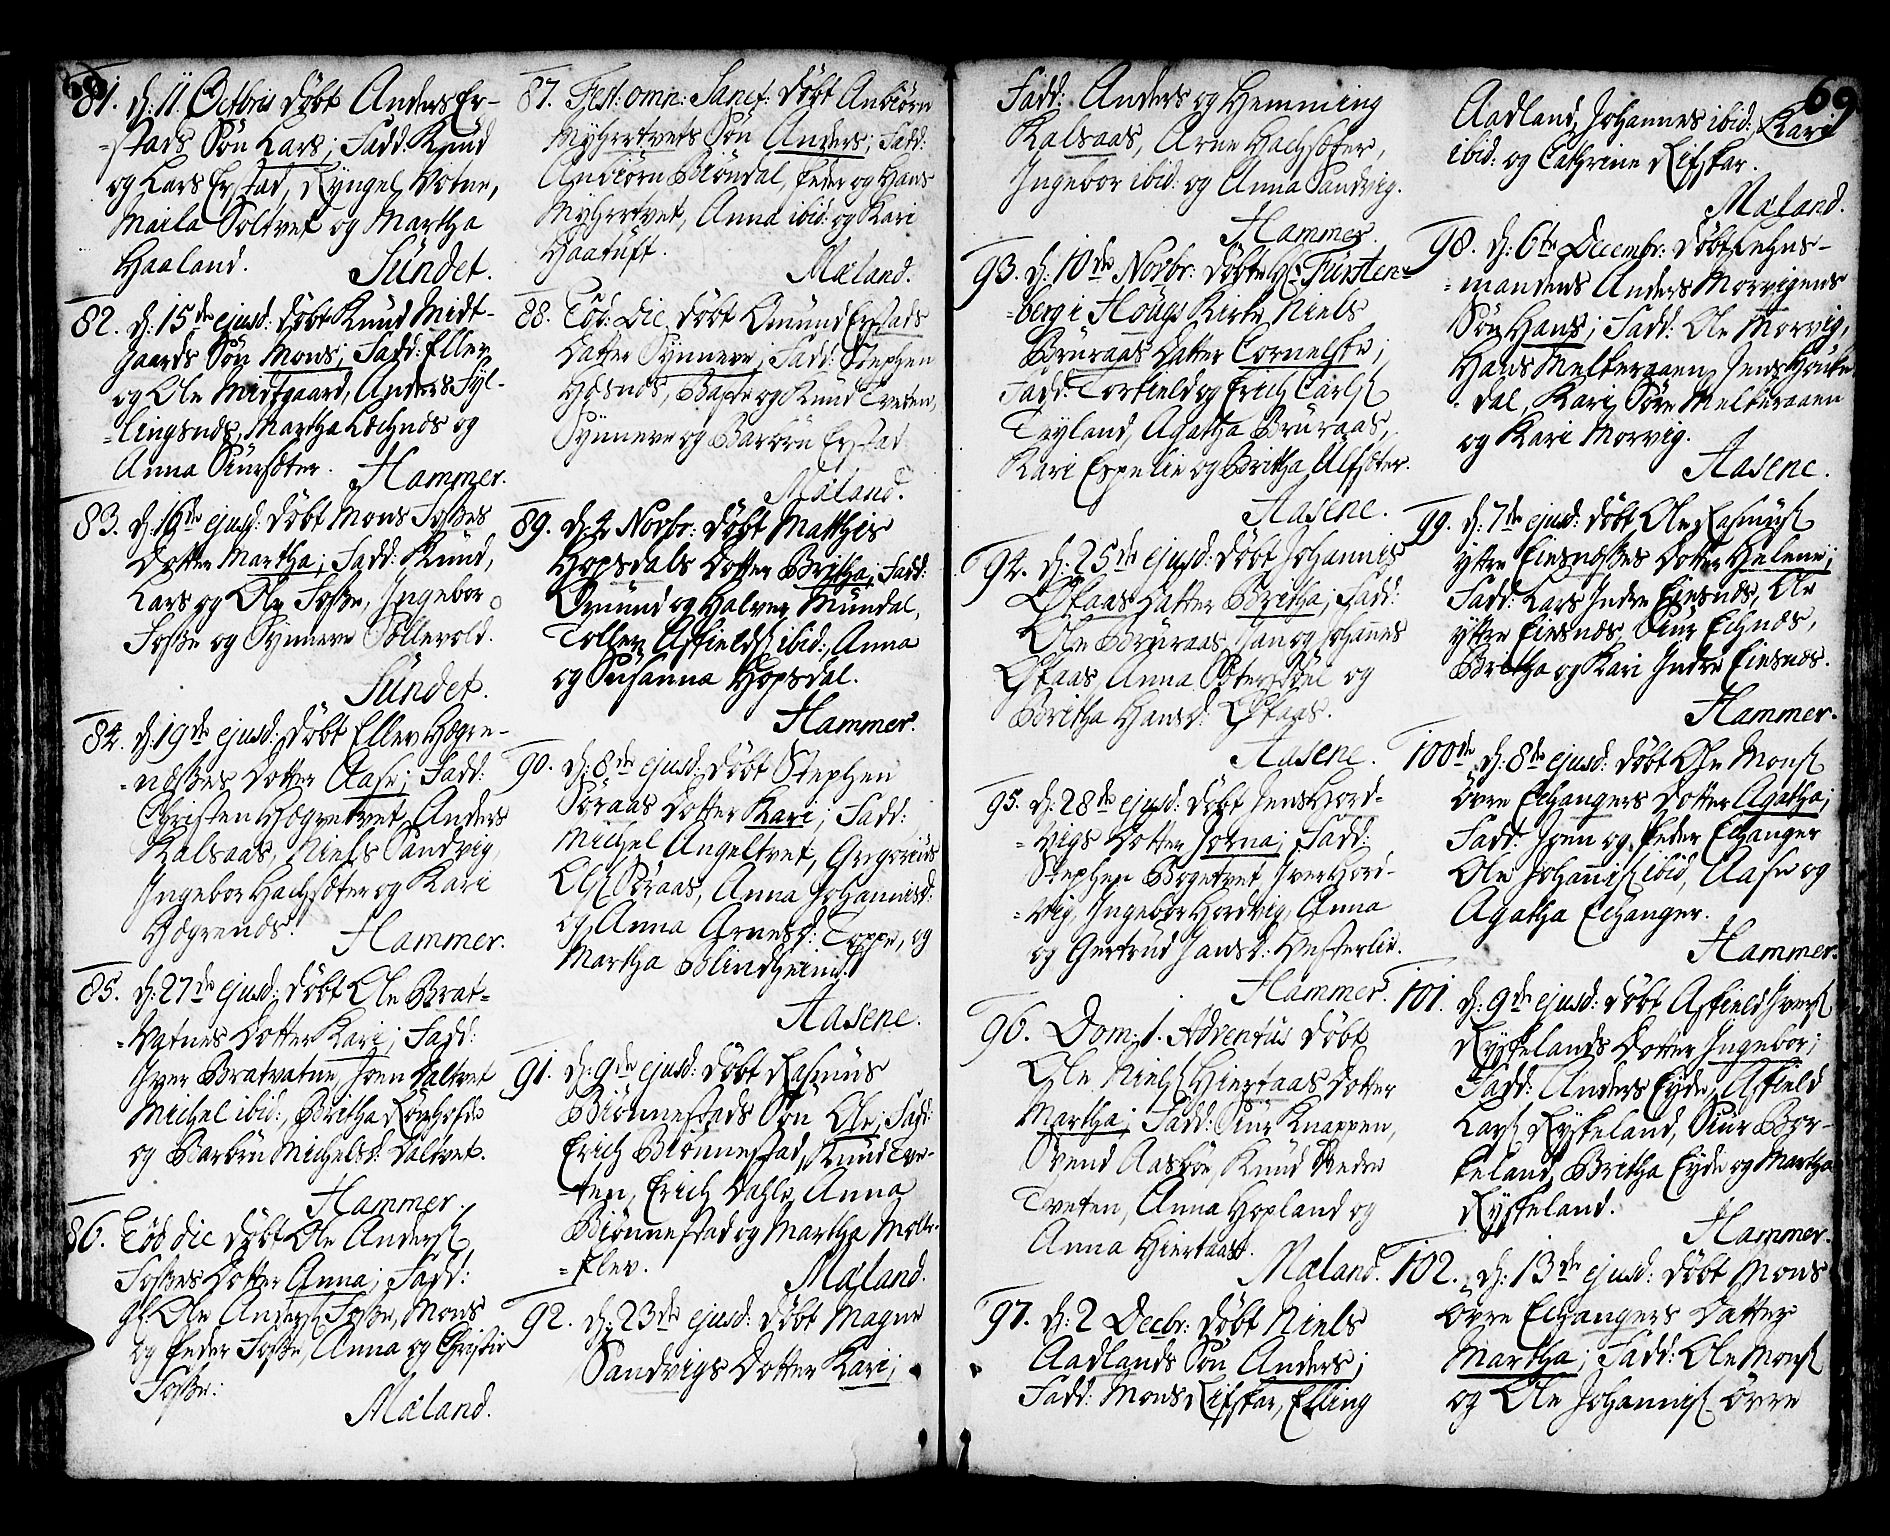 68
81. d: 11. Octbris döbt Anders Er-
-stads Sön Lars; Fadd: Knud
og Lars Erstad, Ryngel Votne,
Maila Soltvet og Martha
Haaland. Sundet.
82. d: 15de ejusd: döbt Knud Midt-
gaards Sön Mons; Fadd: Ellev
og Ole Midtgaard, Anders Syl-
-lingsnæs, Martha Lochnæs og
Anna Siursdter. Hammer.
83. d: 16de ejusd: döbt Mons Fosses
Dotter Martha; Fadd: Knud,
Lars og Ole Fosse, Ingebor
Fosse og Synneve Söllevold.
Sundet.
84. d: 19de ejusd: döbt Ellev Hægre-
-næsses Dotter Aase; Fadd:
Christen Hægretvet, Anders
Kalsaas, Niels Sandvig,
Ingebor Hachsdter og Kari
Hægrenæs. Hammer.
85. d: 27de ejusd: döbt Ole Brat-
-vatnes Dotter Kari; Fadd:
Iver Bratvatne, Joen Daltvet
Michel ibid:, Britha
og Barbru Michelsd: Daltvet.
Hammer.
86. Eöd: die döbt Ole Anders
Fosses Dotter Anna; Fadd:
Ole Anders Fosse, Mons
og Peder Fosse, Anna og Christi
Fosse:
Mæland.
87. Fest: omn: Sanct: döbt Anbiörn
Myhrtvets Sön Anders; Fadd:
Anbiörn Biöndal, Peder og Hans
Myhrtvet, Anna ibid: og Kari
Haatuft.
Mæland.
88. Eöd: Die döbt Omund Erstads
Datter Synneve; Fadd: Stephen
Hösnæs, og Knud Tveten,
Synneve og Barbru Erstad
Mæland.
89. d: 2 Novbr: döbt Matthis
Hopsdals Dotter Britha; Fadd:
Omund og Halver Mundal,
Tollev Asfields ibid:, Anna
og Susanna Hopsdal.
Hammer.
90. d: 8de ejusd: döbt Stephen
Söraas Dotter Kari; Fadd:
Michel Angeltvet, Gregorius
Ols Söraas, Anna Johannisd:
og Anna Arnesd: Toppe, og
Martha Blindheim.
Aasene.
91. d: 9de ejusd: döbt Rasmus
Biönnestads Sön Ole; Fadd:
Erich Biönnestad, Knud Tve-
-ten, Erich Dahle, Anna
Biönnestad og Martha Molle-
-klev.
Mæland.
92. d: 23de ejusd: döbt Magne
Sandvigs Dotter Kari;
Fadd: Anders og Hemming
Kalsaas, Arne Hachsdter,
Ingebor ibid: og Anna Sandvig.
Hammer.
93. d: 10de Novbr: döbte Hr Fursten-
-berg i Hougs Kirke Niels
Bruraas Datter Cornelste;
Fadd: Torkield og Erich Carls
Teyland, Agatha Bruraas,
Kari Espelie og Britha Ulfsdter.
Aasene.
94. d: 25de ejusd: döbt Johannis
Östaas Datter Britha; Fadd:
Ole Bruraas, Jan og Johannes
Östaas, Anna og
Britha Hansd: Östaas.
Aasene.
95. d: 28de ejusd: döbt Jens Hord-
-vigs Dotter Jorna; Fadd:
Stephen Bogetvet, Iver Hord-
-vig, Ingebor Hordvig, Anna
og Gertrud Jansd: Hesterlie.
Hammer.
96. Dom: 1. Adventus döbt
Ole Niels Hiertaas Dotter
Martha; Fadd: Siur Knappen,
Svend Aasböe, Knud Nedre
Tveten, Anna Hopland og
Anna Hiertaas.
Mæland.
97. d: 2 Decbr: döbt Niels
Aadlands Sön Anders;
Fadd: Mons Rifskar, Elling
69
Aadland, Johannes ibid:, Kari
ibid: og Cathrine Rifskar.
Mæland.
98. d: 6te Decembr: döbt Lehns-
-mandens Anders Morvigens
Sön Hans; Fadd: Ole Morvig,
Hans Melkeraaen, Jens Hauke-
-dal, Kari Söre Melkeraaen
og Kari Morvig.
Aasene.
99. d: 7de ejusd: döbt Ole Rasmus
ystre Eiesnæsses Dotter Helene;
Fadd: Lars Indre Eiesnæs, Ole
ystre Eiesnæs, Siur Echnæs,
Britha og Kari Indre Eiesnæs.
Hammer.
100de d: 8de ejusd: döbt Ole Mons
Övre Echangers Dotter Agatha;
Fadd: Joen og Peder Echanger
Ole Johannis ibid, Aase og
Agatha Echanger.
Hammer.
101. d: 9de ejusd: döbt Asfield Ivers
Ryskelands Dotter Ingebor;
Fadd: Anders Eyde, Asfield
Lars Ryskeland, Siur Bor-
keland, Britha Eyde og Martha
Ryskeland.
Hammer.
102. d: 13de ejusd: döbt Mons
Övre Echangers Datter
Martha; Fadd: Ole Mons
og Ole Johannis Övre